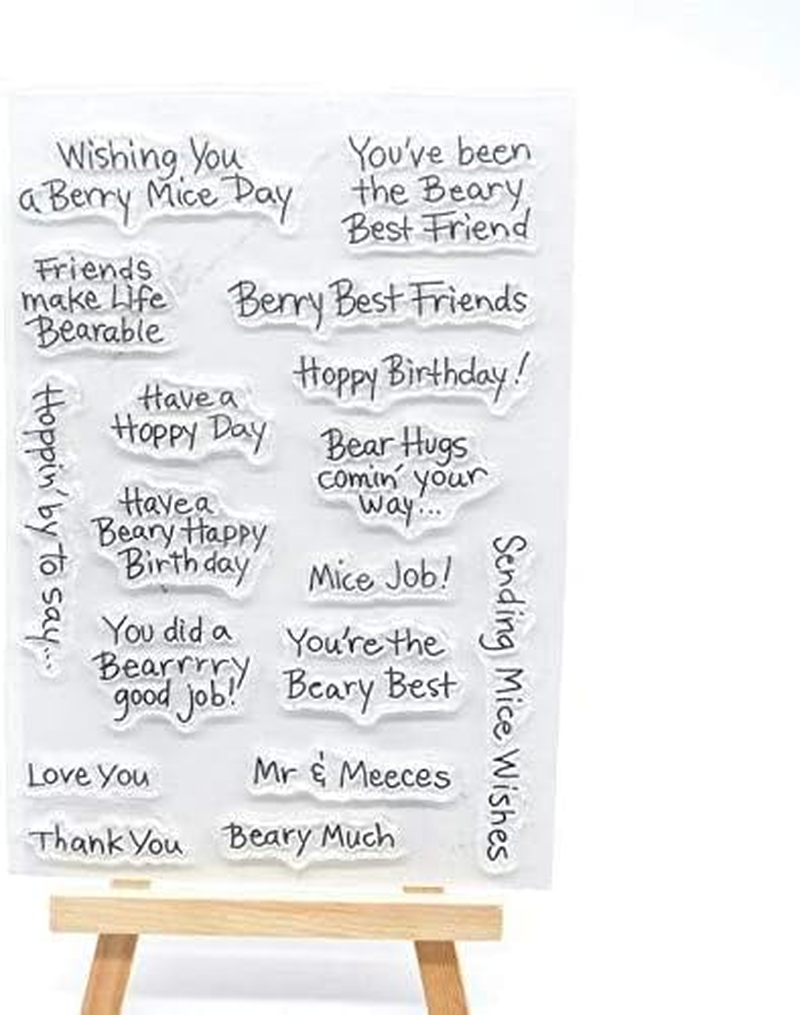 Wishing You
a Berry Mice Day
You've been
the Beary
Best Friend
Friends
make Life
Bearable
Berry Best Friends
Hoppy Birthday!
Hoppin' by to say...
Have a
Hoppy Day
Bear Hugs
comin' your
way...
Have a
Beary Happy
Birthday
Mice Job!
Sending Mice Wishes
You did a
Bearrrry
good job!
You're the
Beary Best
Love You
Mr & Meeces
Thank You
Beary Much